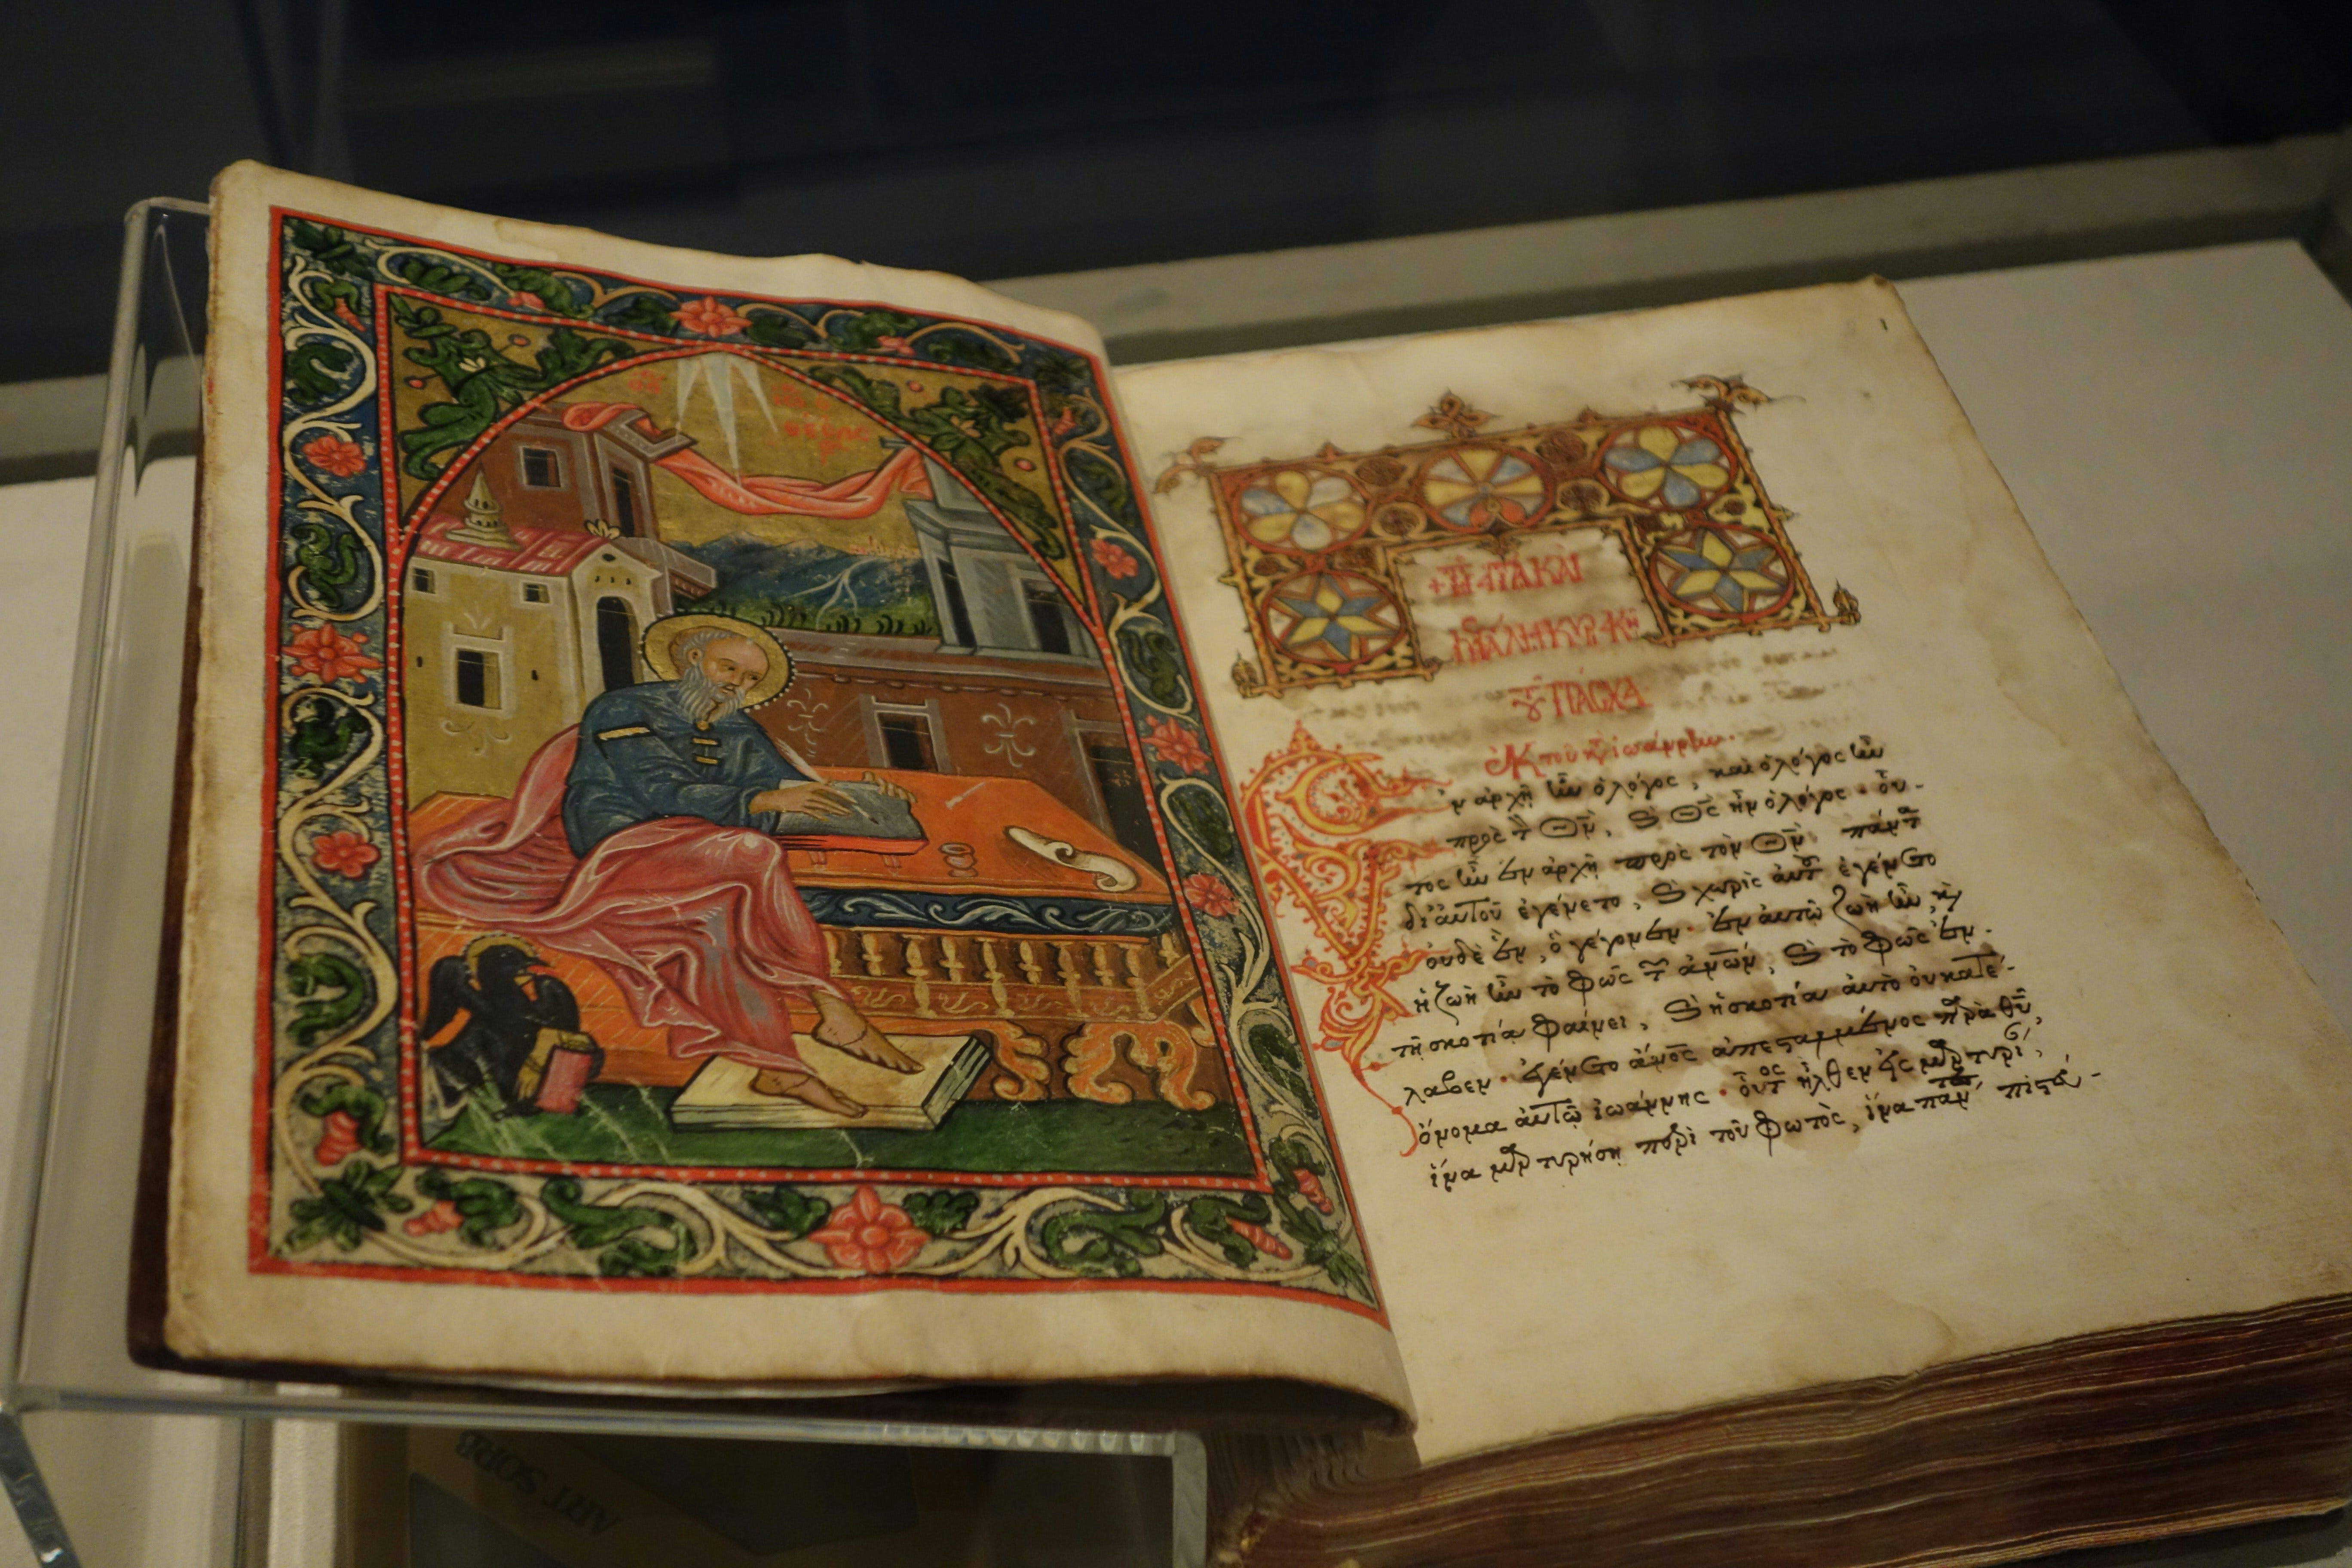 ΠΑΣΧΑ
ἐκ τοῦ κ̄ ἰωάννην.
ν ἀρχῆ ἦν ὁ λόγος, καὶ ὁ λόγος ἦν
πρὸς τ̀ Θν̄, ϗ Θς̄ ἦν ὁ λόγος · οὗ-
τος ἦν ἐν ἀρχῆ πρὸς τὸν Θν̄· πάντα
δι' αὐτοῦ ἐγένετο, ϗ χωρὶς αὐτοῦ ἐγένετο
οὐδὲ ἓν, ὃ γέγονεν· ἐν αὐτῶ ζωὴ ἦν, κỳ
ἡ ζωὴ ἦν τὸ φῶς τ ἀν̄ων̄, ϗ τὸ φῶς ἐν-
τῆ σκοτία φαίνει, ϗ ἡ σκοτία αὐτὸ οὐ κατέ-
λαβεν· ἐγένετο ἄν̄ος ἀπεσταλμένος πρὰ θῦ,
ὄνομα αὐτῶ ἰωάννης · οὗτος ἦλθεν εἰς μρτυρί,
ἵνα μρτυρήση περὶ τοῦ φωτὸς, ἵνα πάντ πιστεύ-
ART SORB